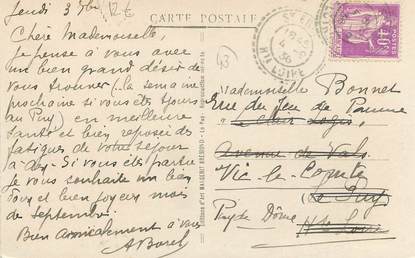 Jeudi 3 7bre
12€
CARTE POSTALE
Chère Mademoiselle,
Je pense à vous avec
un bien grand désir de
vous trouver (la semaine
prochaine si vous êtes
au Puy) en meilleure
santé et bien reposée des
fatigues de votre séjour
Si vous êtes partie
je vous souhaite un bien
doux et bien joyeux mois
de Septembre.
Bien amicalement à vous
A Borel
43
Mademoiselle Bonnet
Rue du Jeu de Paume
Le Clair Logis
Avenue de Vals
Vic-le-Comte
Le Puy
Puy de Dôme
Hte Loire
HTE LOIRE
POSTES